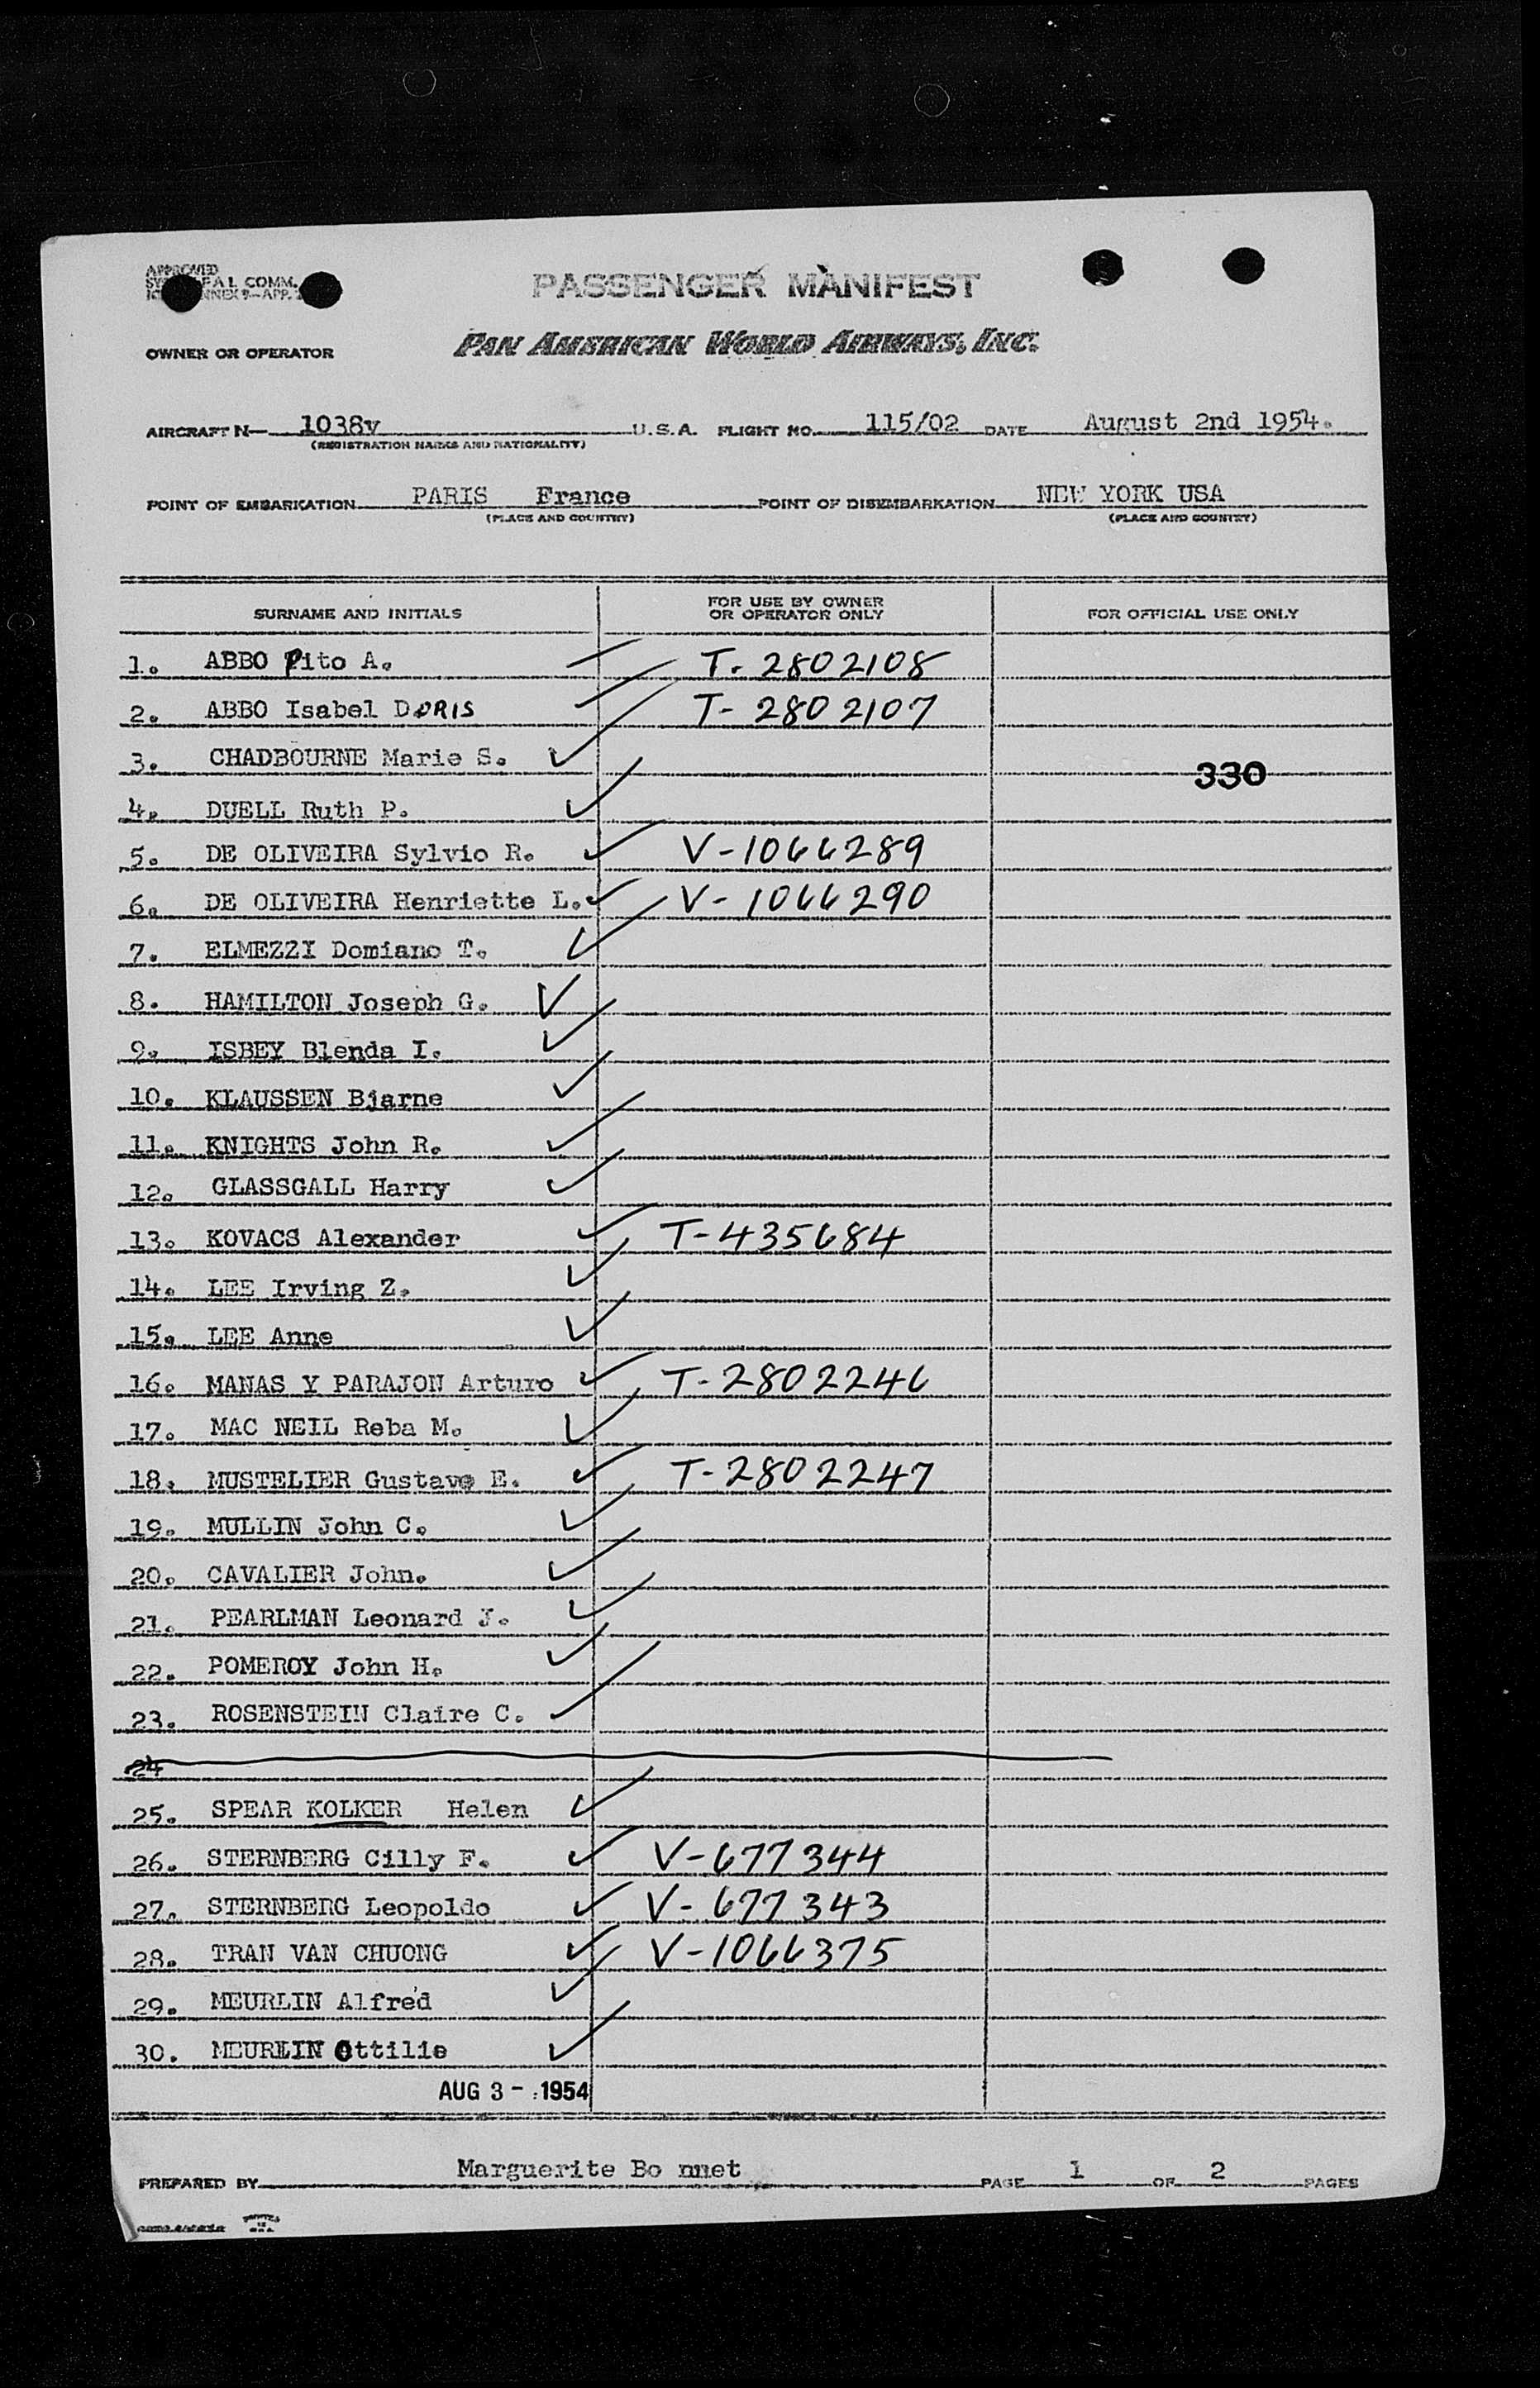 APPROVED
FAL COMM.
ANNEX 9—APP.
PASSENGER MANIFEST
OWNER OR OPERATOR PAN AMERICAN WORLD AIRWAYS, INC.
AIRCRAFT N— 1038v U.S.A. FLIGHT NO. 115/02 DATE August 2nd 1954.
(REGISTRATION MARKS AND NATIONALITY)
POINT OF EMBARKATION PARIS France POINT OF DISEMBARKATION NEW YORK USA
(PLACE AND COUNTRY) (PLACE AND COUNTRY)
SURNAME AND INITIALS FOR USE BY OWNER OR OPERATOR ONLY FOR OFFICIAL USE ONLY
1. ABBO Pito A. T. 2802108
2. ABBO Isabel DORIS T- 2802107
3. CHADBOURNE Marie S. 330
4. DUELL Ruth P.
5. DE OLIVEIRA Sylvio R. V-1066289
6. DE OLIVEIRA Henriette L. V- 1066290
7. ELMEZZI Domiano T.
8. HAMILTON Joseph G.
9. ISBEY Blenda I.
10. KLAUSSEN Bjarne
11. KNIGHTS John R.
12. GLASSGALL Harry
13. KOVACS Alexander T-435684
14. LEE Irving Z.
15. LEE Anne
16. MANAS Y PARAJON Arturo T-2802246
17. MAC NEIL Reba M.
18. MUSTELIER Gustavo E. T-2802247
19. MULLIN John C.
20. CAVALIER John.
21. PEARLMAN Leonard J.
22. POMEROY John H.
23. ROSENSTEIN Claire C.
24
25. SPEAR KOLKER Helen
26. STERNBERG Cilly F. V-677344
27. STERNBERG Leopoldo V- 677343
28. TRAN VAN CHUONG V-1066375
29. MEURLIN Alfred
30. MEURLIN Ottilie
AUG 3 - 1954
PREPARED BY Marguerite Bo nnet PAGE 1 OF 2 PAGES